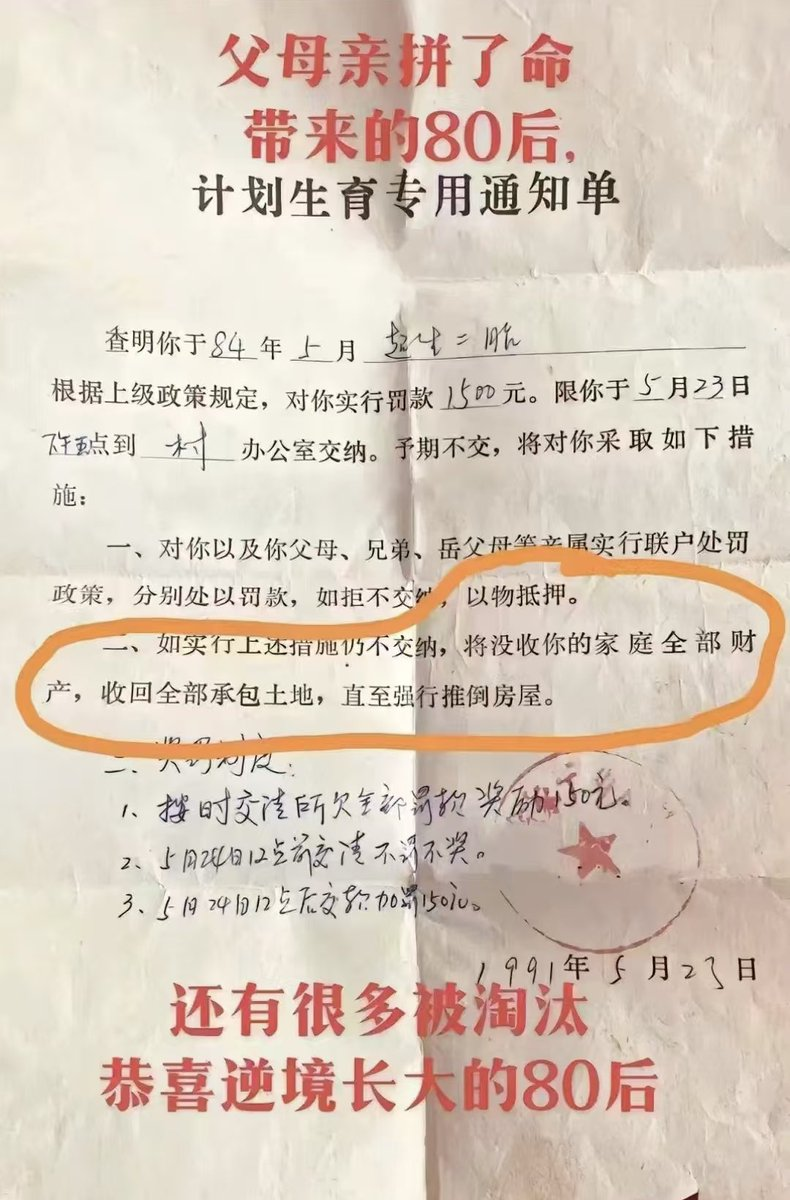 父母亲拼了命
带来的80后,
计划生育专用通知单
查明你于84年5月超生二胎
根据上级政策规定，对你实行罚款1500元。限你于5月23日
下午5点到 村 办公室交纳。予期不交，将对你采取如下措
施：
一、对你以及你父母、兄弟、岳父母等亲属实行联户处罚
政策，分别处以罚款，如拒不交纳，以物抵押。
二、如实行上述措施仍不交纳，将没收你的家庭全部财
产，收回全部承包土地，直至强行推倒房屋。
三、奖罚制度：
1、按时交清所欠全部罚款奖励150元。
2、5月24日12点前交清不罚不奖。
3、5月24日12点后交款加罚150元。
1991年5月23日
还有很多被淘汰
恭喜逆境长大的80后